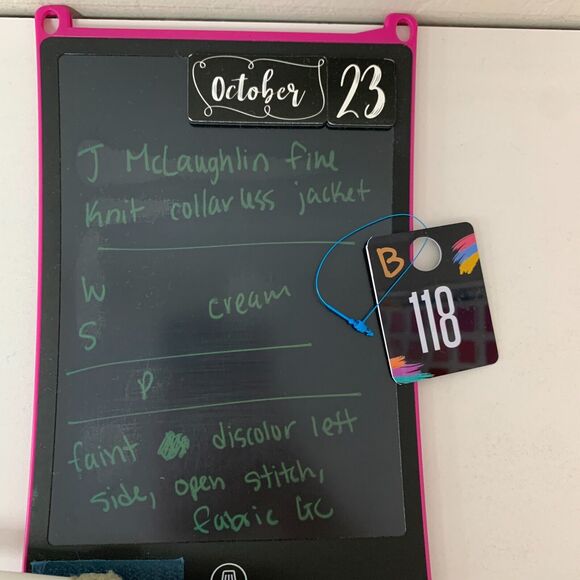 October 23
J McLaughlin fine
knit collarless jacket
W
cream
S
P
faint discolor left
side, open stitch,
fabric GC
B
118